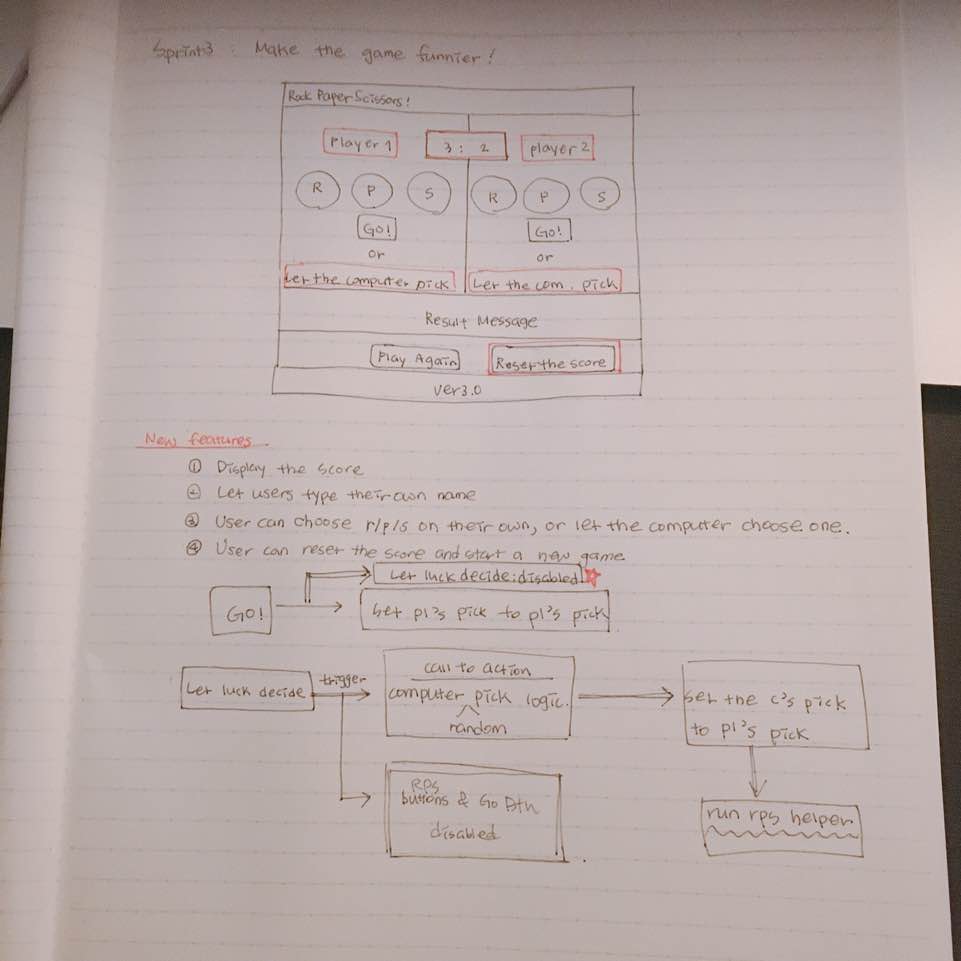 Sprint3 : Make the game funnier!
Rock Paper Scissors!
Player 1 3 : 2 player 2
R P S R P S
GO! GO!
or or
Let the computer pick Let the com. pick
Result Message
Play Again Reset the score
ver3.0
New features
① Display the score
② Let users type their own name
③ User can choose r/p/s on their own, or let the computer choose one.
④ User can reset the score and start a new game
Let luck decide : disabled
GO! Set p1's pick to p1's pick
Let luck decide trigger call to action
computer pick logic.
random
Set the c's pick
to p1's pick
RPS
buttons & Go Btn
disabled
run rps helper